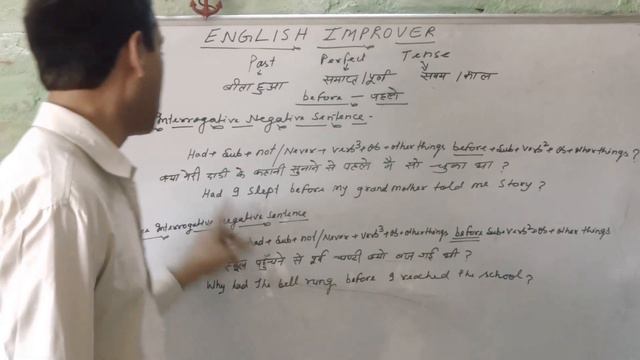 ENGLISH IMPROVER
Past Perfect Tense
बीता हुआ समाप्त/पूर्ण समय/काल
before - पहले
Interrogative Negative Sentence -
Had + Sub + not/Never + Verb³ + Ob + other things before + Sub + Verb² + Ob + other things?
क्या मेरी दादी के कहानी सुनाने से पहले मैं सो चुका था?
Had I slept before my grand mother told me story?
Interrogative negative sentence
had + Sub + not/Never + Verb³ + Ob + other things before Sub + Verb² + Ob + other things
स्कूल पहुँचने से पूर्व घण्टी क्यों बज गई थी?
Why had the bell rung before I reached the school?